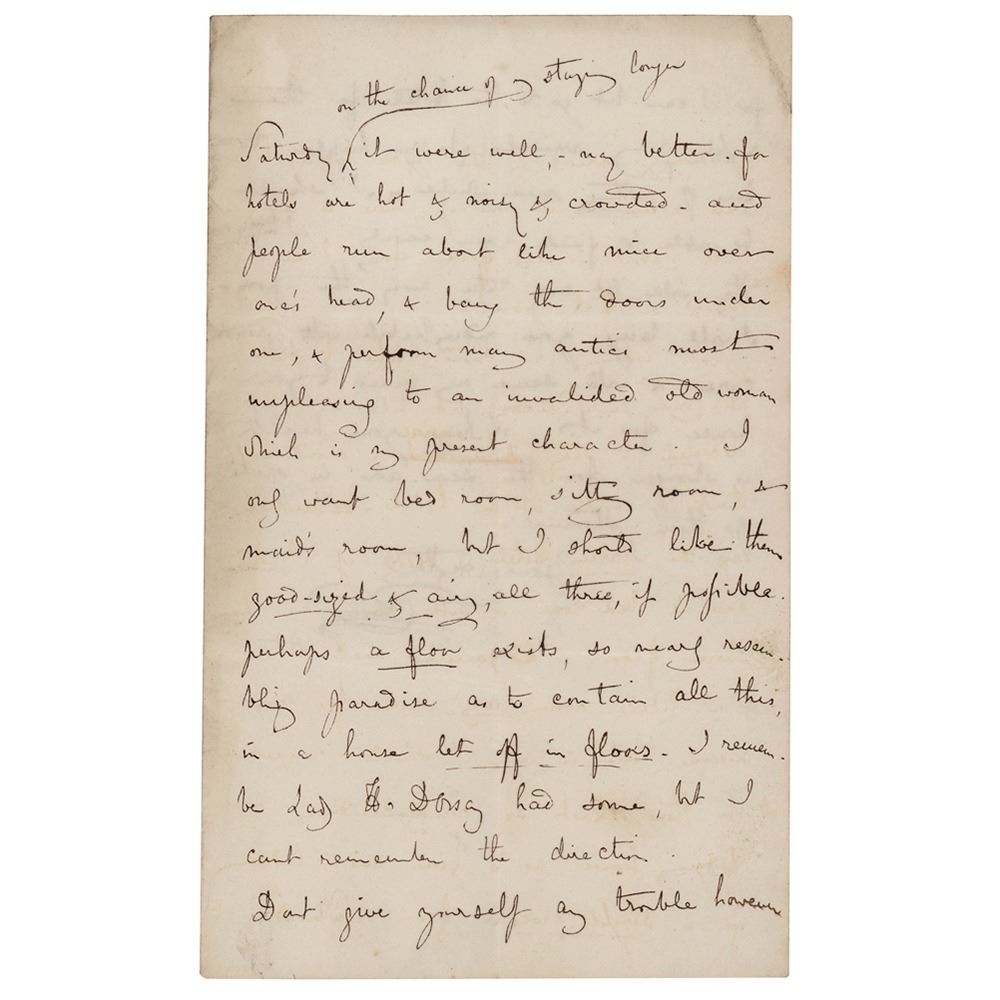 on the chance of my staying longer
Saturday it were well, - nay better. for
hotels are hot & noisy & crowded - and
people run about like mice over
one's head, & bang the doors under
one, & perform many antics most
unpleasing to an invalided old woman
which is my present character. I
only want bed room, sitting room, &
maid's room, but I should like them
good-sized & airy, all three, if possible.
perhaps a floor exists, so nearly resem-
bling paradise as to contain all this,
in a house let off in floors - I remem-
be Lady H. Dorsay had some, but I
cant remember the direction.
Dont give yourself any trouble however